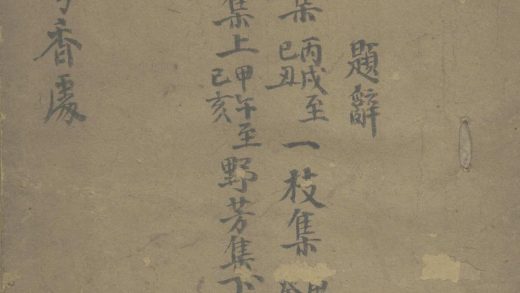 題辭
集丙戌至己丑一枝集
集上甲午至己亥野芳集下
香處